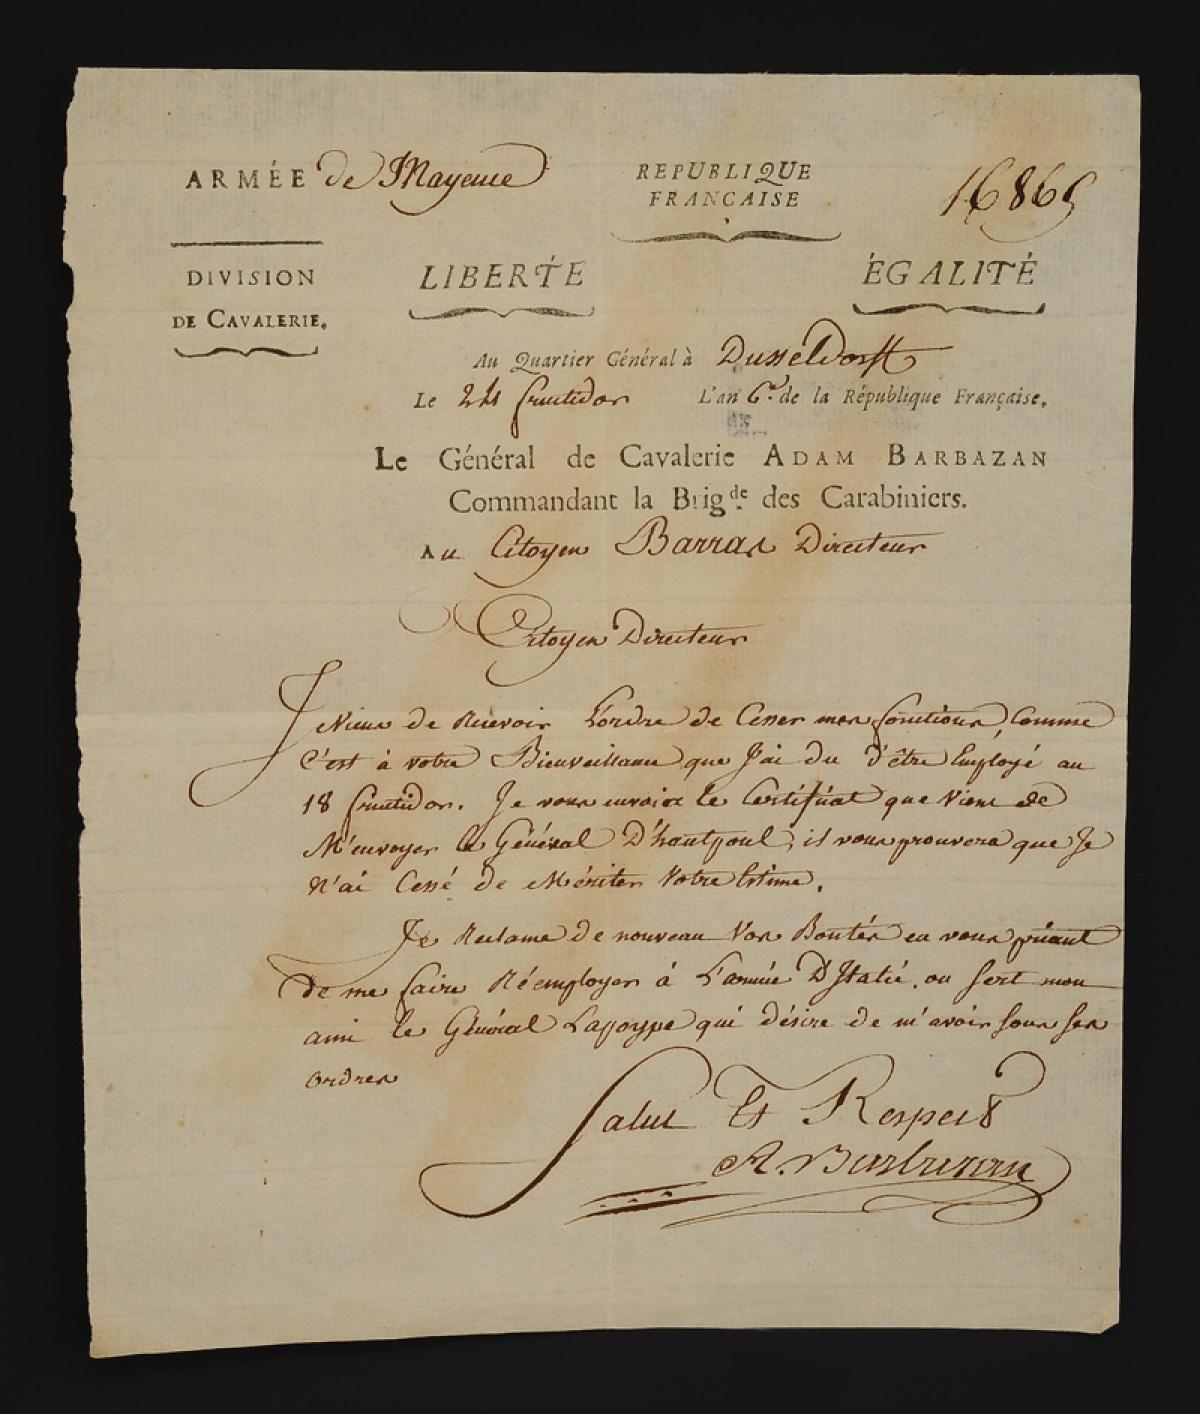 ARMÉE de Mayence
REPUBLIQUE
FRANCAISE
16865
DIVISION
DE CAVALERIE.
LIBERTÉ
ÉGALITÉ
Au Quartier Général à Dusseldorff
Le 24 fructidor L'an 6.e de la République Française.
Le Général de Cavalerie ADAM BARBAZAN
Commandant la Brigde. des Carabiniers.
Au Citoyen Barras Directeur
Citoyen Directeur
Je viens de Recevoir L'ordre de Cesser mes fonctions, Comme
C'est à votre Bienveillance que J'ai du d'être Employé au
18 fructidor. Je vous envoie le Certificat que Vient de
M'envoyer le Général D'hautpoul, il vous prouvera que Je
N'ai Cessé de Mériter Votre Estime.
Je Reclame de nouveau Vos Bontés en vous priant
de me faire Réemployer à L'armée D'Italie, ou sert mon
ami le Général Lapoype qui désire de m'avoir sous ses
ordres
Salut Et Respect
A. Barbazan